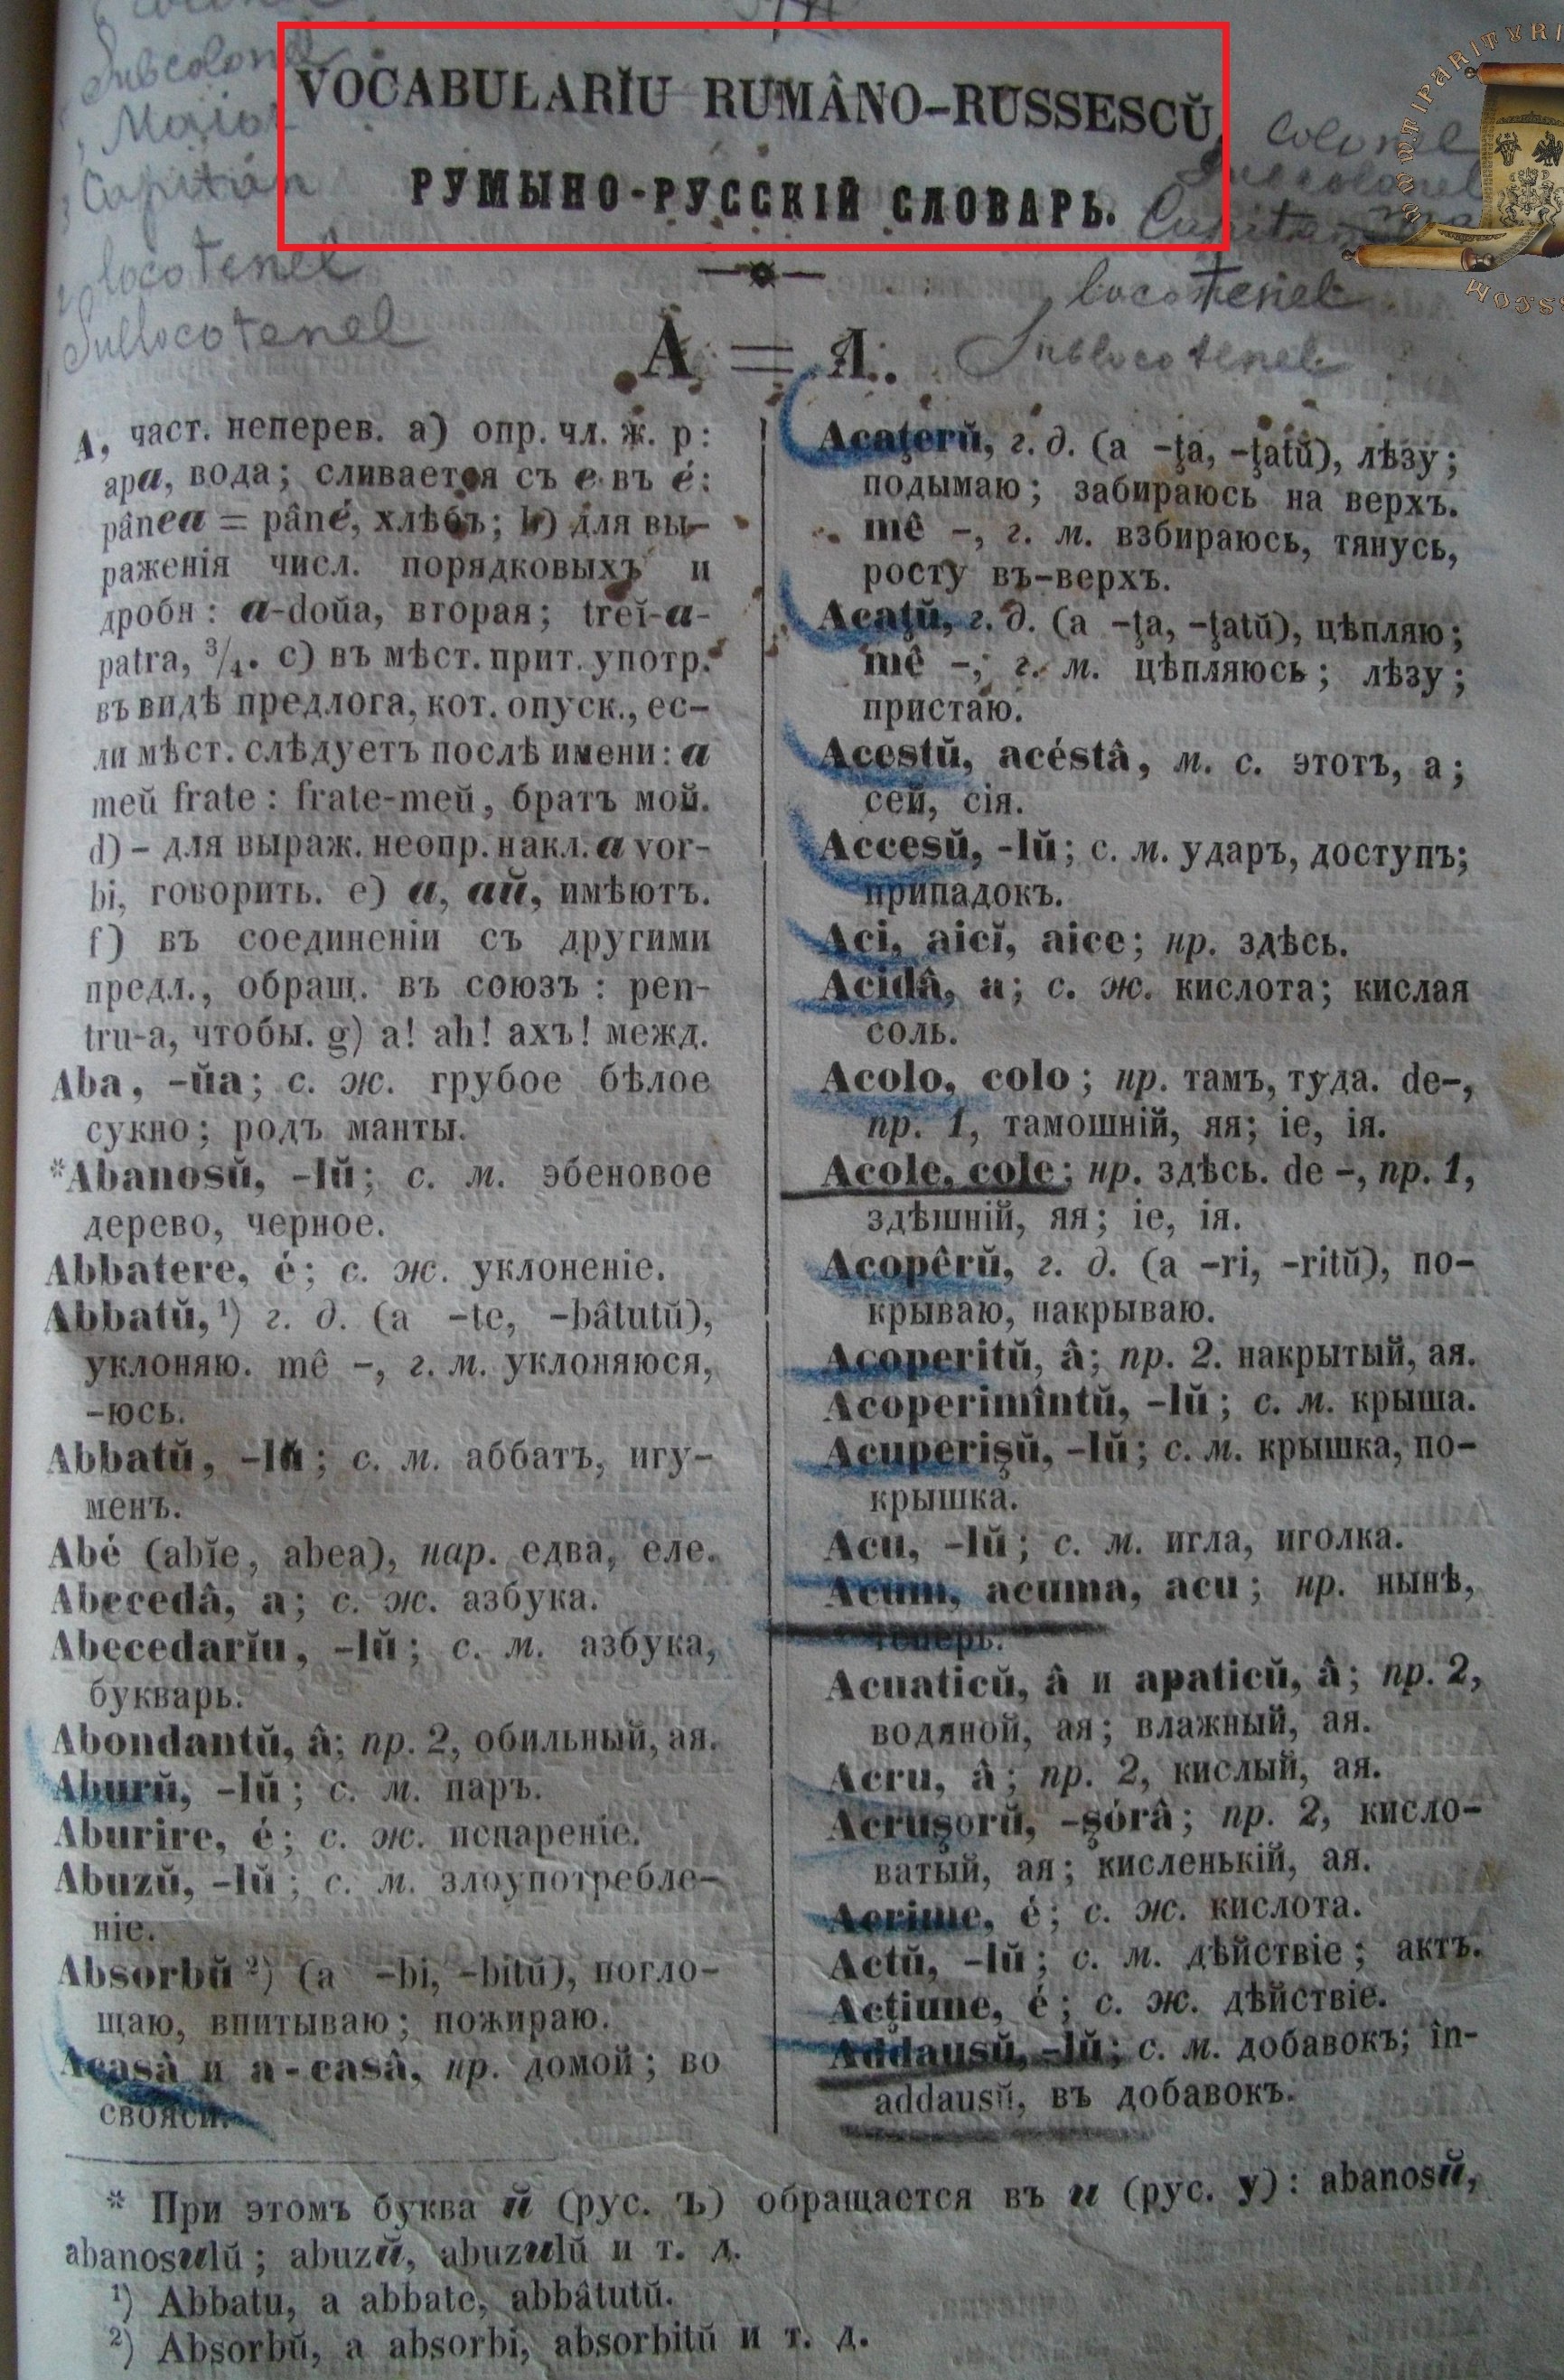 Subcolonel
Maior
Capitan
locotenel
Sullocotenel
VOCABULARĬU RUMÂNO-RUSSESCŬ,
РУМЫНО-РУССКІЙ СЛОВАРЬ.
Colonel
Capitan
locotenel
Sublocotenel
A = A.
A, част. неперев. a) опр. чл. ж. р:
apa, вода; сливается съ e въ é:
pânea = pâné, хлѣбъ; b) для вы-
раженія числ. порядковыхъ и
дробн: a-doŭa, вторая; treĭ-a-
patra, 3/4. c) въ мѣст. прит. употр.
въ видѣ предлога, кот. опуск., ес-
ли мѣст. слѣдуетъ послѣ имени: a
meŭ frate: frate-meŭ, братъ мой.
d) – для выраж. неопр. накл. a vor-
bi, говорить. e) a, aŭ, имѣютъ.
f) въ соединеніи съ другими
предл., обращ. въ союзъ: pen-
tru-a, чтобы. g) a! ah! ахъ! межд.
Aba, -ŭa; с. ж. грубое бѣлое
сукно; родъ манты.
*Abanosŭ, -lŭ; с. м. эбеновое
дерево, черное.
Abbatere, é; с. ж. уклоненіе.
Abbatŭ, ¹) г. д. (a -te, -bâtutŭ),
уклоняю. mê -, г. м. уклоняюся,
-юсь.
Abbatŭ, -lŭ; с. м. аббатъ, игу-
менъ.
Abé (abĭe, abea), нар. едва, еле.
Abecedâ, a; с. ж. азбука.
Abecedarĭu, -lŭ; с. м. азбука,
букварь.
Abondantŭ, â; пр. 2, обильный, ая.
Aburŭ, -lŭ; с. м. паръ.
Aburire, é; с. ж. испареніе.
Abuzŭ, -lŭ; с. м. злоупотребле-
ніе.
Absorbŭ ²) (a -bi, -bitŭ), погло-
щаю, впитываю; пожираю.
Acasâ и a-casâ, нр. домой; во
свояси.
Acaţerŭ, г. д. (a -ţa, -ţatŭ), лѣзу;
подымаю; забираюсь на верхъ.
mê -, г. м. взбираюсь, тянусь,
росту въ-верхъ.
Acaţŭ, г. д. (a -ţa, -ţatŭ), цѣпляю;
mê -, г. м. цѣпляюсь; лѣзу;
пристаю.
Acestŭ, acéstâ, м. с. этотъ, а;
сей, сія.
Accesŭ, -lŭ; с. м. ударъ, доступъ;
припадокъ.
Aci, aicĭ, aice; нр. здѣсь.
Acidâ, a; с. ж. кислота; кислая
соль.
Acolo, colo; нр. тамъ, туда. de-,
пр. 1, тамошній, яя; іе, ія.
Acole, cole; нр. здѣсь. de -, пр. 1,
здѣшній, яя; іе, ія.
Acopêrŭ, г. д. (a -ri, -ritŭ), по-
крываю, накрываю.
Acoperitŭ, â; пр. 2. накрытый, ая.
Acoperimîntŭ, -lŭ; с. м. крыша.
Acuperişŭ, -lŭ; с. м. крышка, по-
крышка.
Acu, -lŭ; с. м. игла, иголка.
Acum, acuma, acu; нр. нынѣ,
теперь.
Acuaticŭ, â и apaticŭ, â; пр. 2,
водяной, ая; влажный, ая.
Acru, â; пр. 2, кислый, ая.
Acruşorŭ, -şórâ; пр. 2, кисло-
ватый, ая; кисленькій, ая.
Acrime, é; с. ж. кислота.
Actŭ, -lŭ; с. м. дѣйствіе; актъ.
Acţiune, é; с. ж. дѣйствіе.
Addausŭ, -lŭ; с. м. добавокъ; în-
addausŭ, въ добавокъ.
* При этомъ буква ŭ (рус. ъ) обращается въ u (рус. у): abanosŭ,
abanosulŭ; abuzŭ, abuzulŭ и т. д.
¹) Abbatu, a abbate, abbâtutŭ.
²) Absorbŭ, a absorbi, absorbitŭ и т. д.